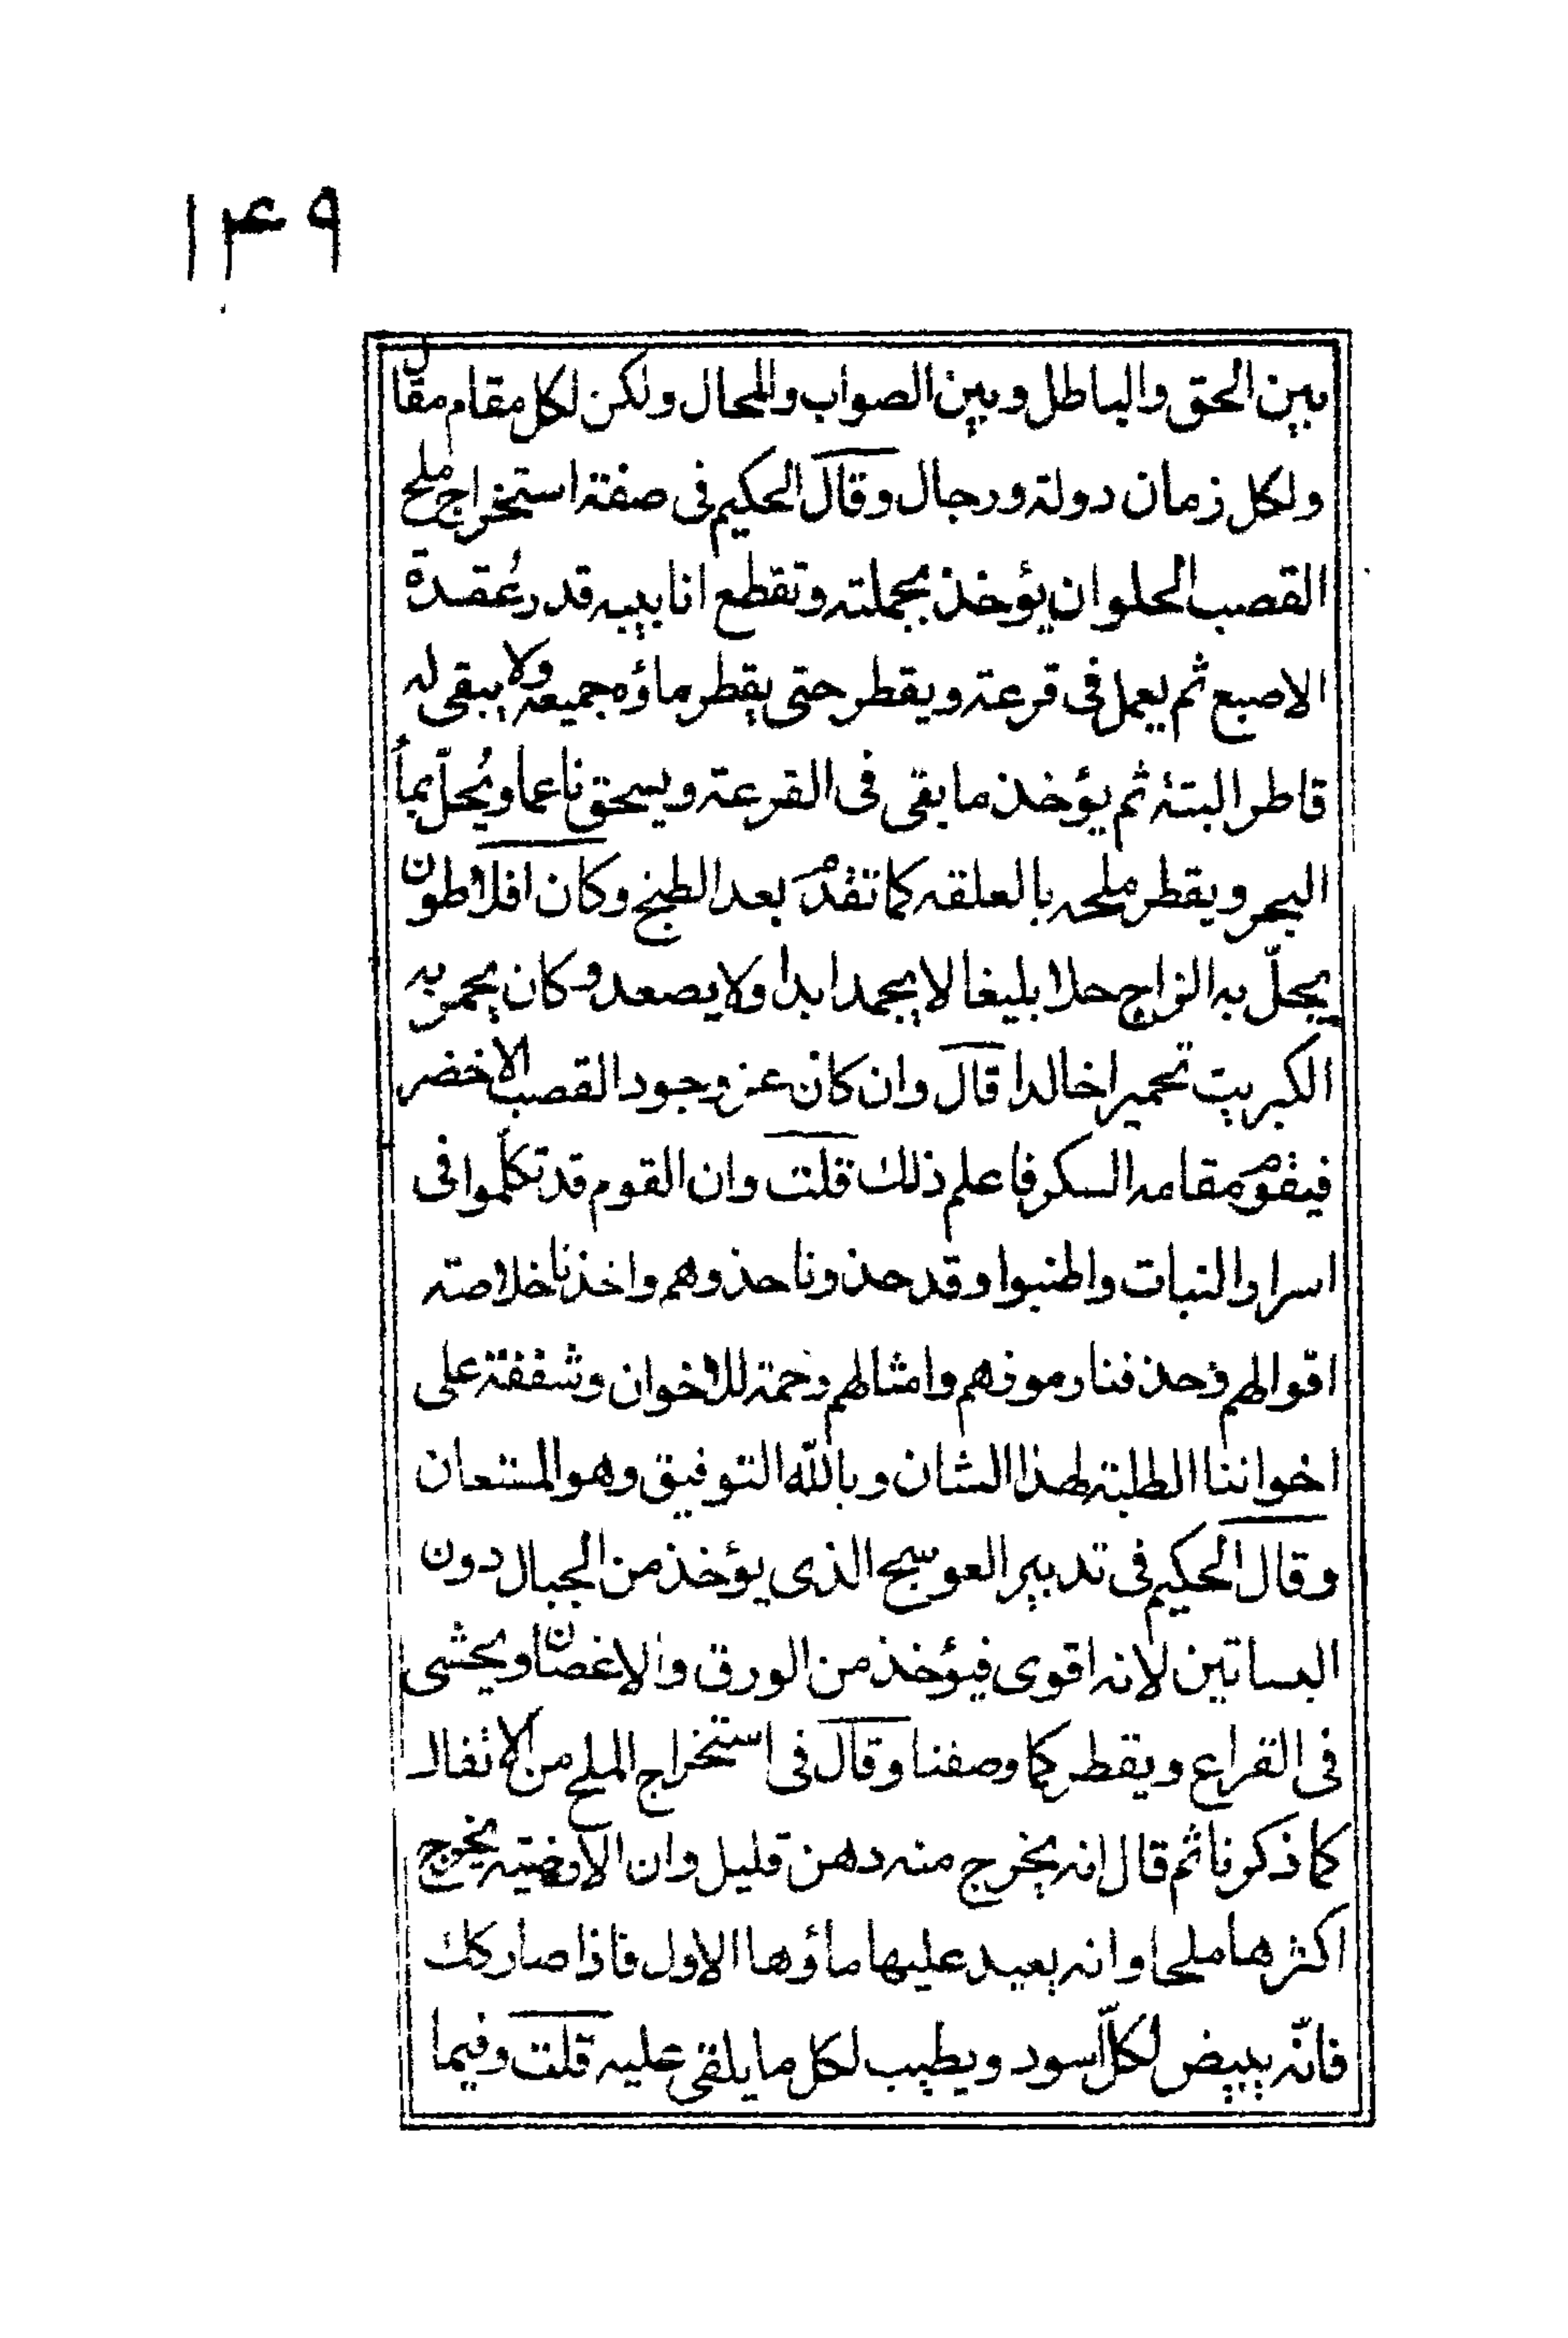 ۱۴۹
بين الحق والباطل وبين الصواب والمحال ولكن لكل مقام مقال
ولكل زمان دولة ورجال وقال الحكيم فى صفة استخراج ملح
القصب الحلو ان يؤخذ بجملته وتقطع انابيبه قدر عُقدة
الاصبع ثم يعمل فى قرعة ويقطر حتى يقطر ماؤه جميعه ولا يبقى له
قاطر البتة ثم يؤخذ ما بقى فى القرعة ويسحق ناعما ويُحلّ بماءُ
البحر ويقطر ملحه بالعلقه كما تقدم بعد الطبخ وكان افلاطون
يحلّ به الزاج حلا بليغا لا يجمد ابدا ولا يصعد وكان يحمر به
الكبريت تحميرا خالدا قال وان كان عز وجود القصب الاخضر
فيقوم مقامه السكر فاعلم ذلك قلت وان القوم قد تكلّموا فى
اسرار النبات واطنبوا وقد حذونا حذوهم واخذنا خلاصة
اقوالهم وحذفنا رموزهم وامثالهم رحمة للاخوان وشفقة على
اخواننا الطلبة لهذا الشان وبالله التوفيق وهو المستعان
وقال الحكيم فى تدبير العوسج الذى يؤخذ من الجبال دون
البساتين لانه اقوى فيؤخذ من الورق والاغصان ويحشى
فى القراع ويقطر كما وصفنا وقال فى استخراج الملح من الاثفال
كما ذكرنا ثم قال انه يخرج منه دهن قليل وان الارضية يخرج
اكثرها ملحا وانه يعيد عليها ماؤها الاول فاذا صار كك
فانّه يبيض لكلّ اسود ويطيب لكل ما يلقى عليه قلت وفيما